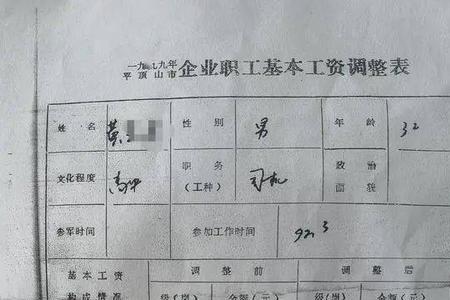 一九九九年
平顶山市 企业职工基本工资调整表
姓名 黄 性别 男 年龄 32
文化程度 高中 职务（工种） 司机 政治面貌
参军时间 参加工作时间 92.3
基本工资 调整前 调整后
构成情况 级(岗) 金额(元) 级(岗) 金额(元)